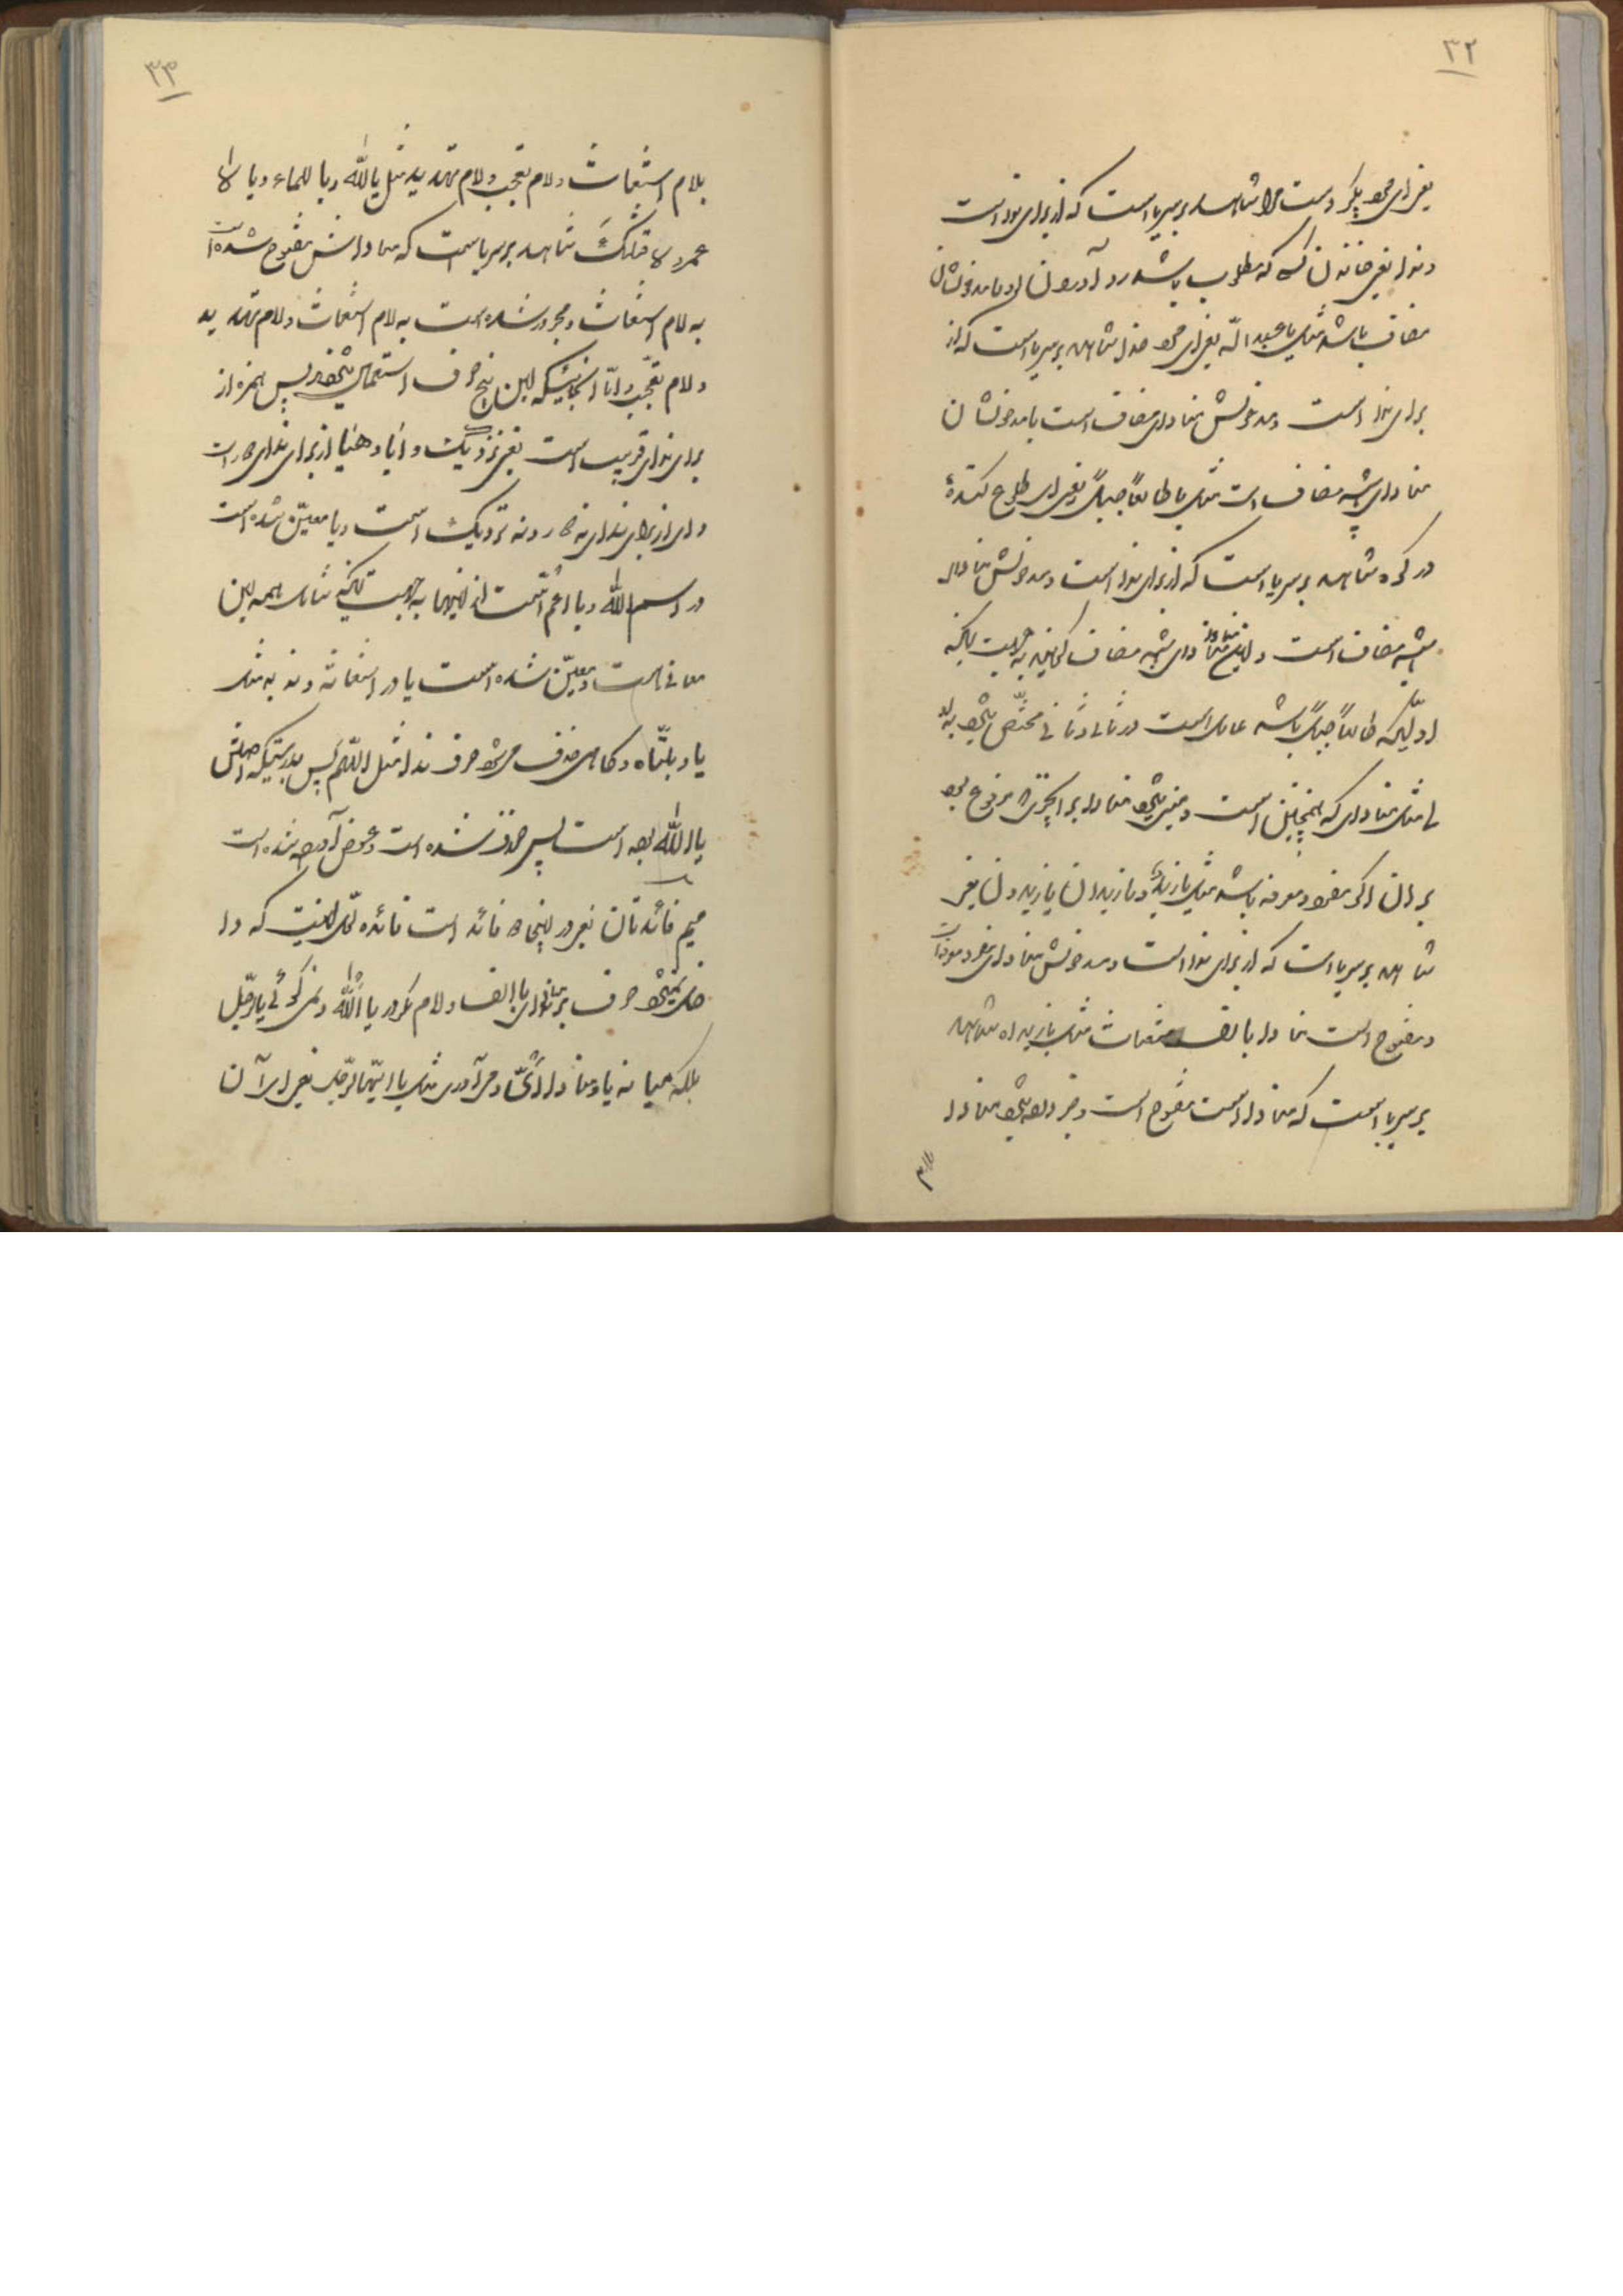 ۳۲
یعنی ای بگیر دست مرا شاهد بر سر یا است که از برای ندا است
و ندا یعنی خاندن کسی که مطلوب باشد رو آوردن او با مدخولشان
مضاف باشد مثل یا عبد اللّه یعنی ای خدا شاهد بر سر یا است که از
برای ندا است و مدخولش منادای مضاف است یا مدخولشان
منادای شبه مضاف است مثل یا طالعاً جبلاً یعنی ای طلوع کنندهٔ
در کوه شاهد بر سر یا است که از برای ندا است و مدخولش منادای
شبه مضاف است و این منادای شبه مضاف گویند به جهت آنکه
اولیکه طالعاً جبلاً باشد عامل است در ثانی و ثانی مختصّ میشود به او
مثل منادای که همچنین است و مبنی میشود منادا بر آنچیزی مرفوع بود
بر آن اگر مفرد معرفه باشد مثل یا زیدُ و یا زیدان یا زیدون یعنی
شاهد بر سر یا است که از برای ندا است و مدخولش منادای مفرد معرفه است
و مفتوح است منادا با الف استغاث مثل یا زیداه شاهد
بر سر یا است که منادا است مفتوح است و جر داده میشود منادا
بلام
۳۳
بلام استغاث و لام تعجب و لام تهدید مثل یا للّه و یا للماء و یا لا
عمرو لاقتلنّک شاهد بر سر یا است که منادایش مفتوح شده است
به لام استغاث و مجرور شده است به لام استغاث و لام تهدید
و لام تعجّب و امّا اینجائیکه این پنج حرف استعمال میشود پس همزه از
برای ندای قریب است یعنی نزدیک و أیا و هیا از برای ندای دور است
و ای از برای ندای نه دور و نه نزدیک است و یا معیّن شده است
در اسم اللّه و یا اعمّ است از اینها به جهت آنکه شامل همه این
معانی است و معیّن شده است یا در استغاثه و ندبه مثل
یا ویلتاه و گاهی حذف میشود حرف ندا مثل اللّهمّ پس بدرستیکه اصلش
یا اللّه بوده است پس حذف شده است و عوض آورده شده است
میم فائدتان یعنی در اینجا دو فائده است فائده اوّل اینست که دا
خل نمیشود حرف بر منادای با الف و لام مگر در یا اللّه و نمیگوئی یا الرّجل
بلکه میانه یا و منادا أیّ در میآوری مثل یا ایّها الرّجل یعنی ای آن